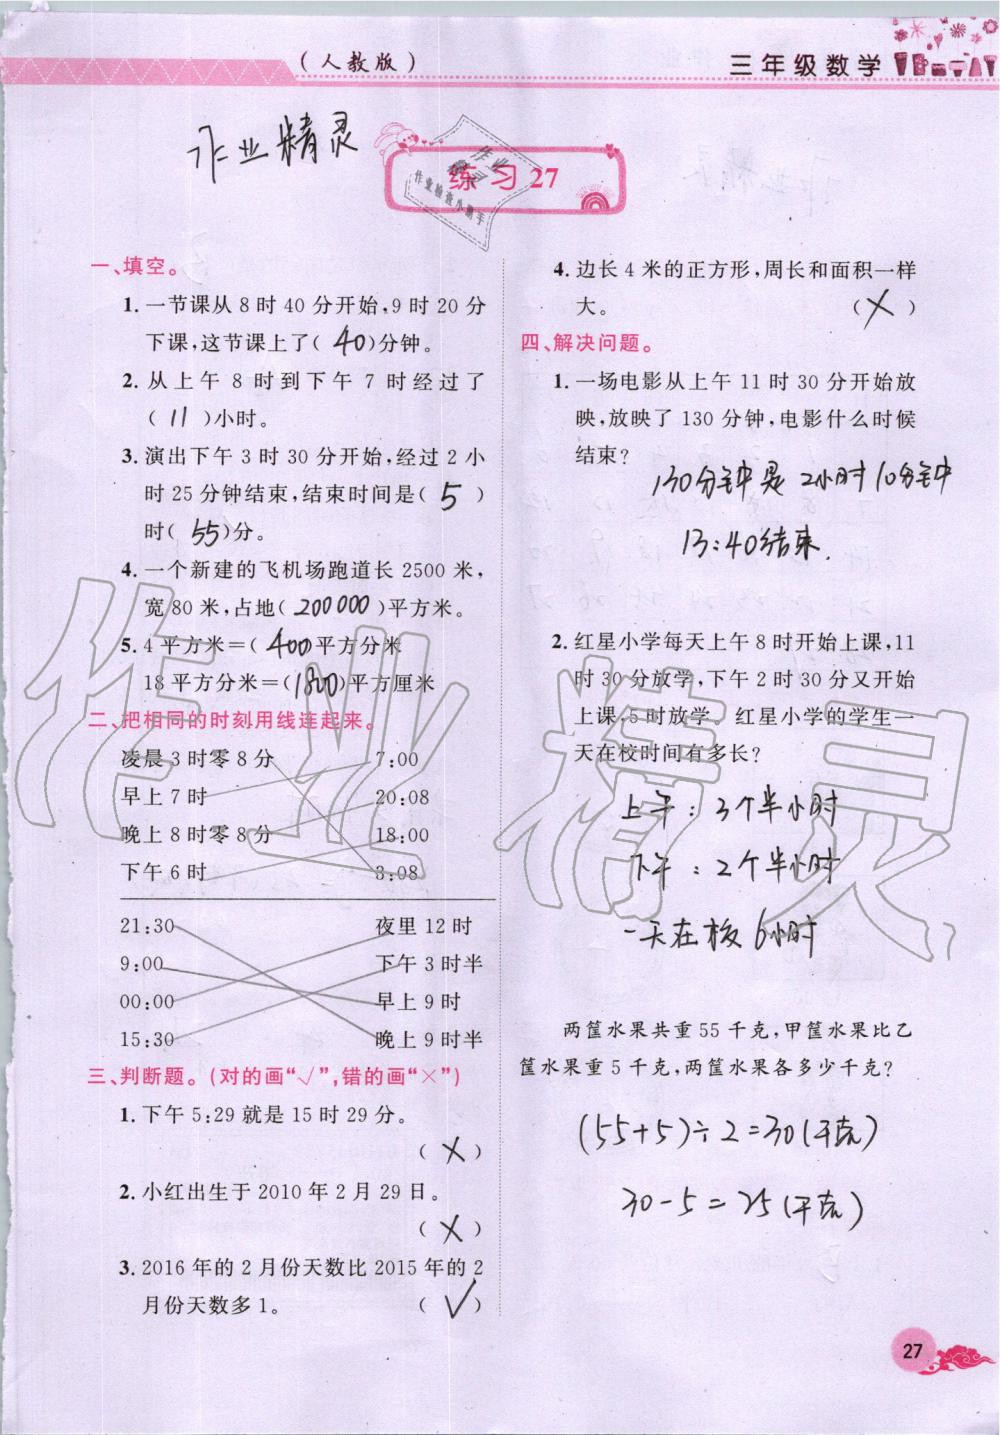 (人教版)
三年级数学
作业精灵
练习 27
作业
精灵
作业检查小帮手
一、填空。
1. 一节课从 8 时 40 分开始,9 时 20 分
下课,这节课上了( 40 )分钟。
2. 从上午 8 时到下午 7 时经过了
( 11 )小时。
3. 演出下午 3 时 30 分开始,经过 2 小
时 25 分钟结束,结束时间是( 5 )
时( 55 )分。
4. 一个新建的飞机场跑道长 2500 米,
宽 80 米,占地( 200000 )平方米。
5. 4 平方米=( 400 )平方分米
18 平方分米=( 1800 )平方厘米
二、把相同的时刻用线连起来。
凌晨 3 时零 8 分 7:00
早上 7 时 20:08
晚上 8 时零 8 分 18:00
下午 6 时 3:08
21:30 夜里 12 时
9:00 下午 3 时半
00:00 早上 9 时
15:30 晚上 9 时半
三、判断题。(对的画“√”,错的画“×”)
1. 下午 5:29 就是 15 时 29 分。
( × )
2. 小红出生于 2010 年 2 月 29 日。
( × )
3. 2016 年的 2 月份天数比 2015 年的 2
月份天数多 1。 ( √ )
4. 边长 4 米的正方形,周长和面积一样
大。 ( × )
四、解决问题。
1. 一场电影从上午 11 时 30 分开始放
映,放映了 130 分钟,电影什么时候
结束?
130分钟是 2小时10分钟
13:40结束.
2. 红星小学每天上午 8 时开始上课,11
时 30 分放学,下午 2 时 30 分又开始
上课,5 时放学。红星小学的学生一
天在校时间有多长?
上午:3个半小时
下午:2个半小时
一天在校6小时
两筐水果共重 55 千克,甲筐水果比乙
筐水果重 5 千克,两筐水果各多少千克?
(55+5)÷2=30(千克)
30-5=25(千克)
作业精灵
27